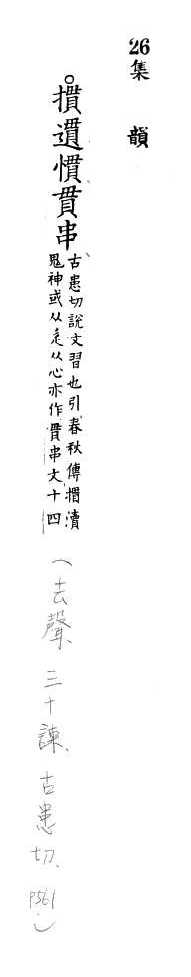 26集 韻
。摜遺慣貫串
古患切說文習也引春秋傳摜瀆
鬼神或从辵从心亦作貫串文十四
(去聲、三十諫、古患切、P561)